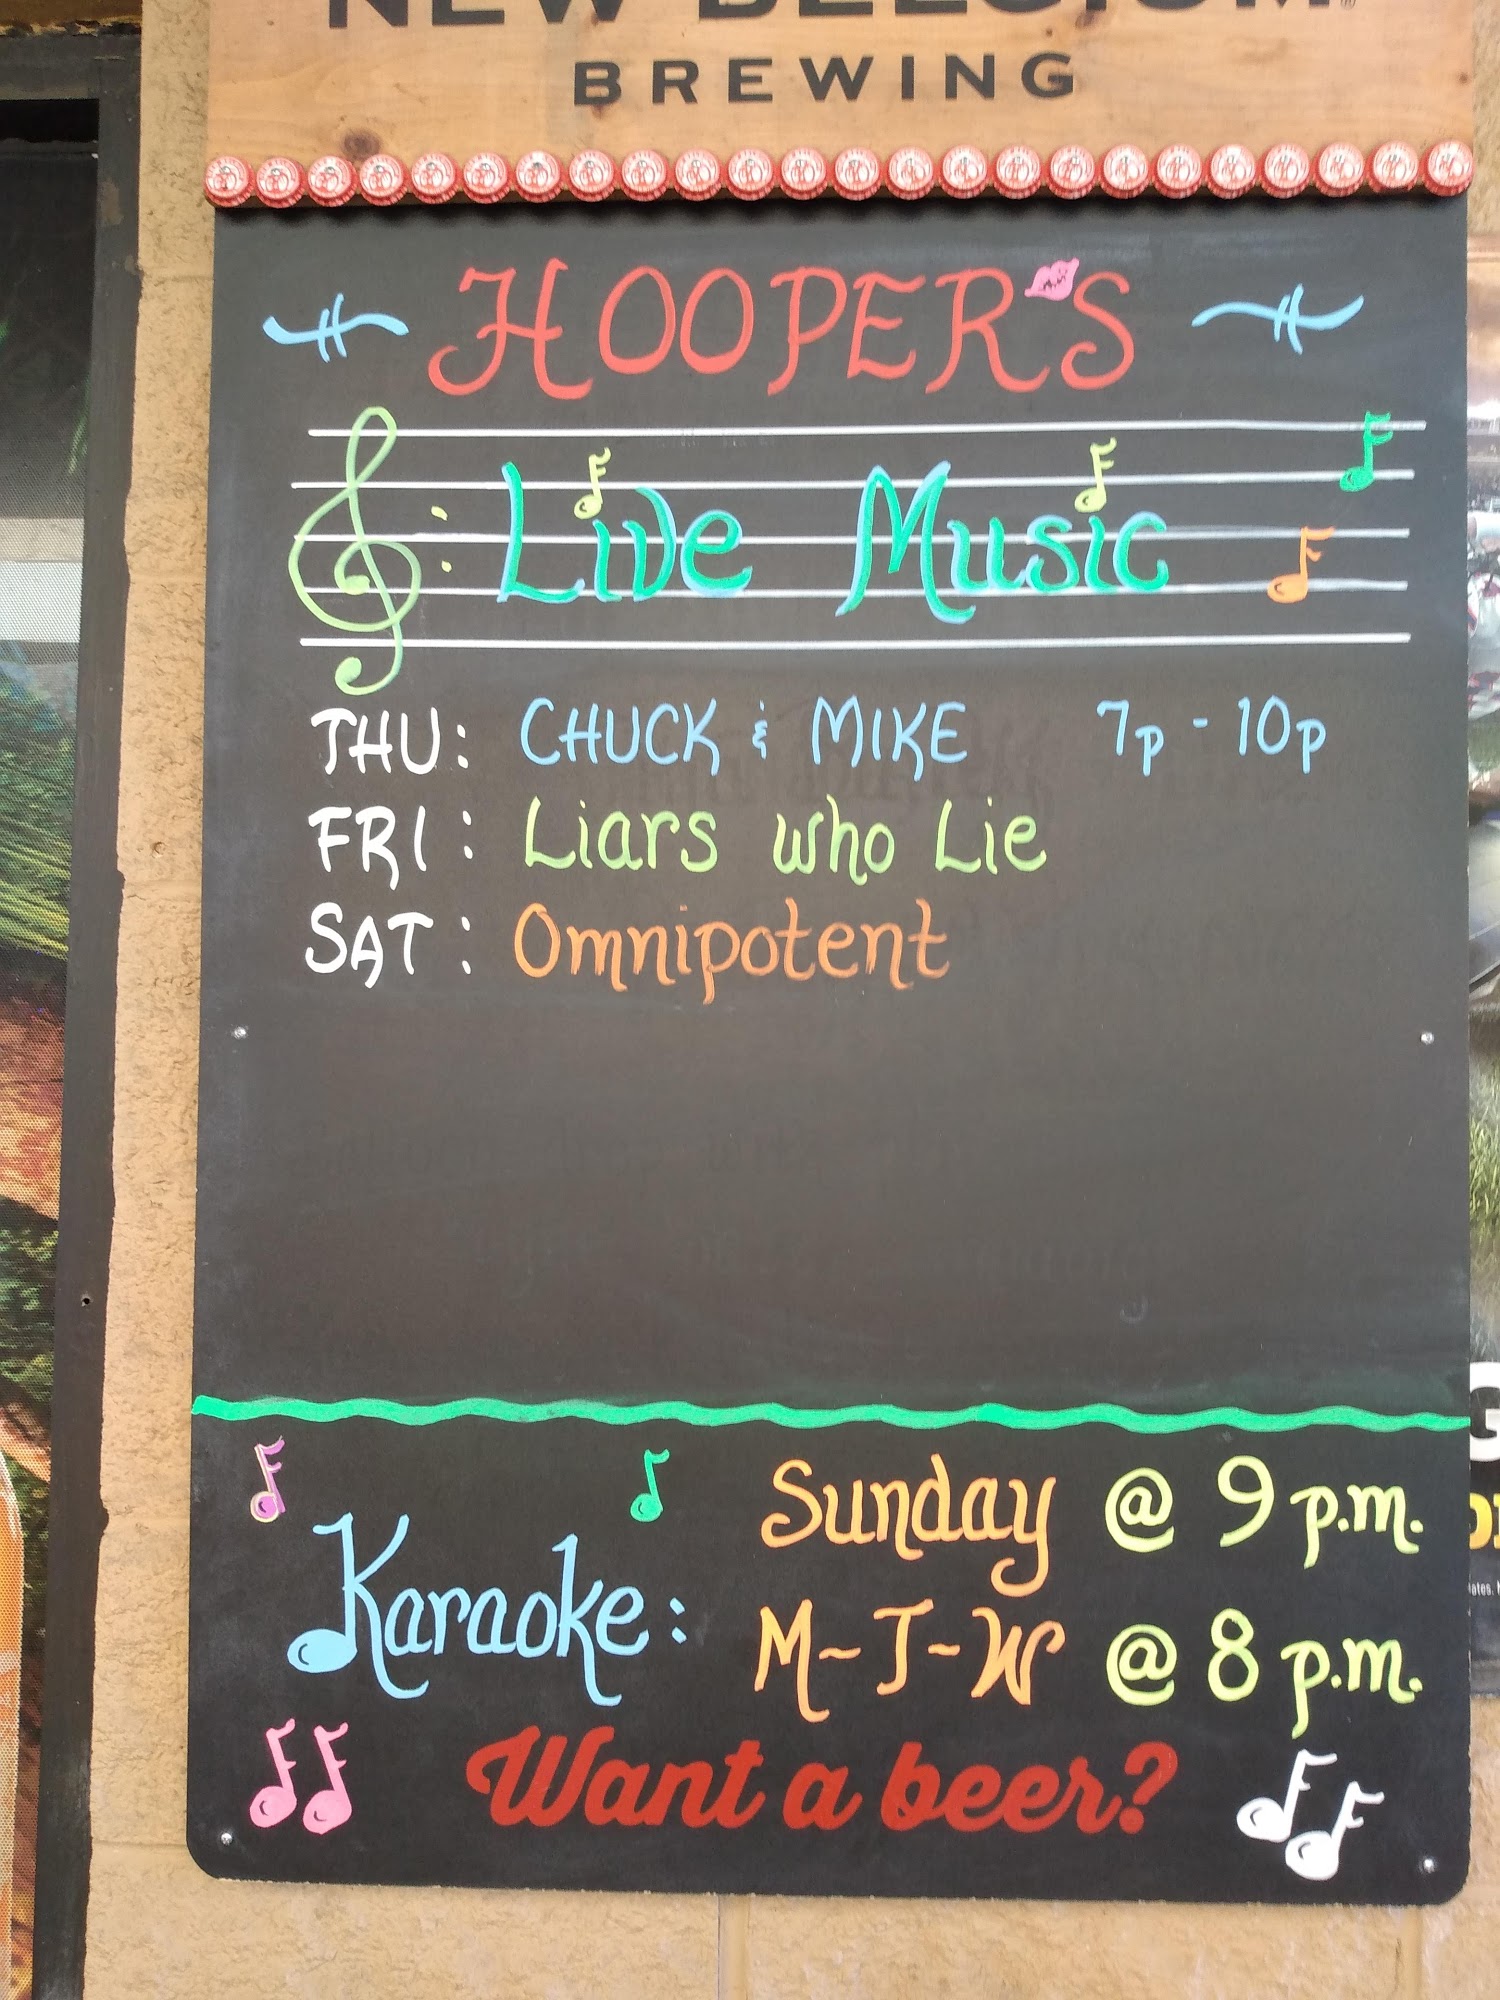 NEW BELGIUM®
BREWING
HOOPER'S
Live Music
THU: CHUCK & MIKE 7p - 10p
FRI: Liars who Lie
SAT: Omnipotent
Karaoke:
Sunday @ 9 p.m.
M~T~W @ 8 p.m.
Want a beer?